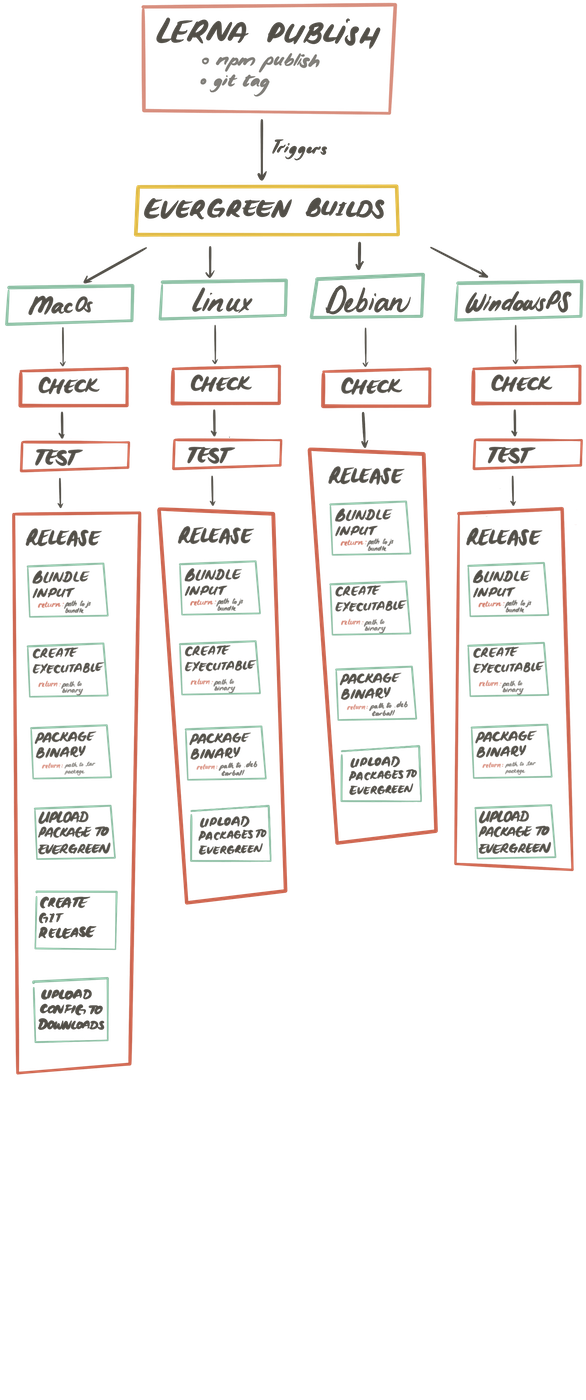 LERNA PUBLISH
npm publish
git tag
Triggers
EVERGREEN BUILDS
MacOs
Linux
Debian
WindowsPS
CHECK
CHECK
CHECK
CHECK
TEST
TEST
TEST
RELEASE
BUNDLE
INPUT
return: path to js
bundle
CREATE
EXECUTABLE
return: path to
binary
PACKAGE
BINARY
return: path to .tar
package
UPLOAD
PACKAGE TO
EVERGREEN
CREATE
GIT
RELEASE
UPLOAD
CONFIG TO
DOWNLOADS
RELEASE
BUNDLE
INPUT
return: path to js
bundle
CREATE
EXECUTABLE
return: path to
binary
PACKAGE
BINARY
return: path to .deb
tarball
UPLOAD
PACKAGES TO
EVERGREEN
RELEASE
BUNDLE
INPUT
return: path to js
bundle
CREATE
EXECUTABLE
return: path to
binary
PACKAGE
BINARY
return: path to .deb
tarball
UPLOAD
PACKAGES TO
EVERGREEN
RELEASE
BUNDLE
INPUT
return: path to js
bundle
CREATE
EXECUTABLE
return: path to
binary
PACKAGE
BINARY
return: path to .tar
package
UPLOAD
PACKAGE TO
EVERGREEN